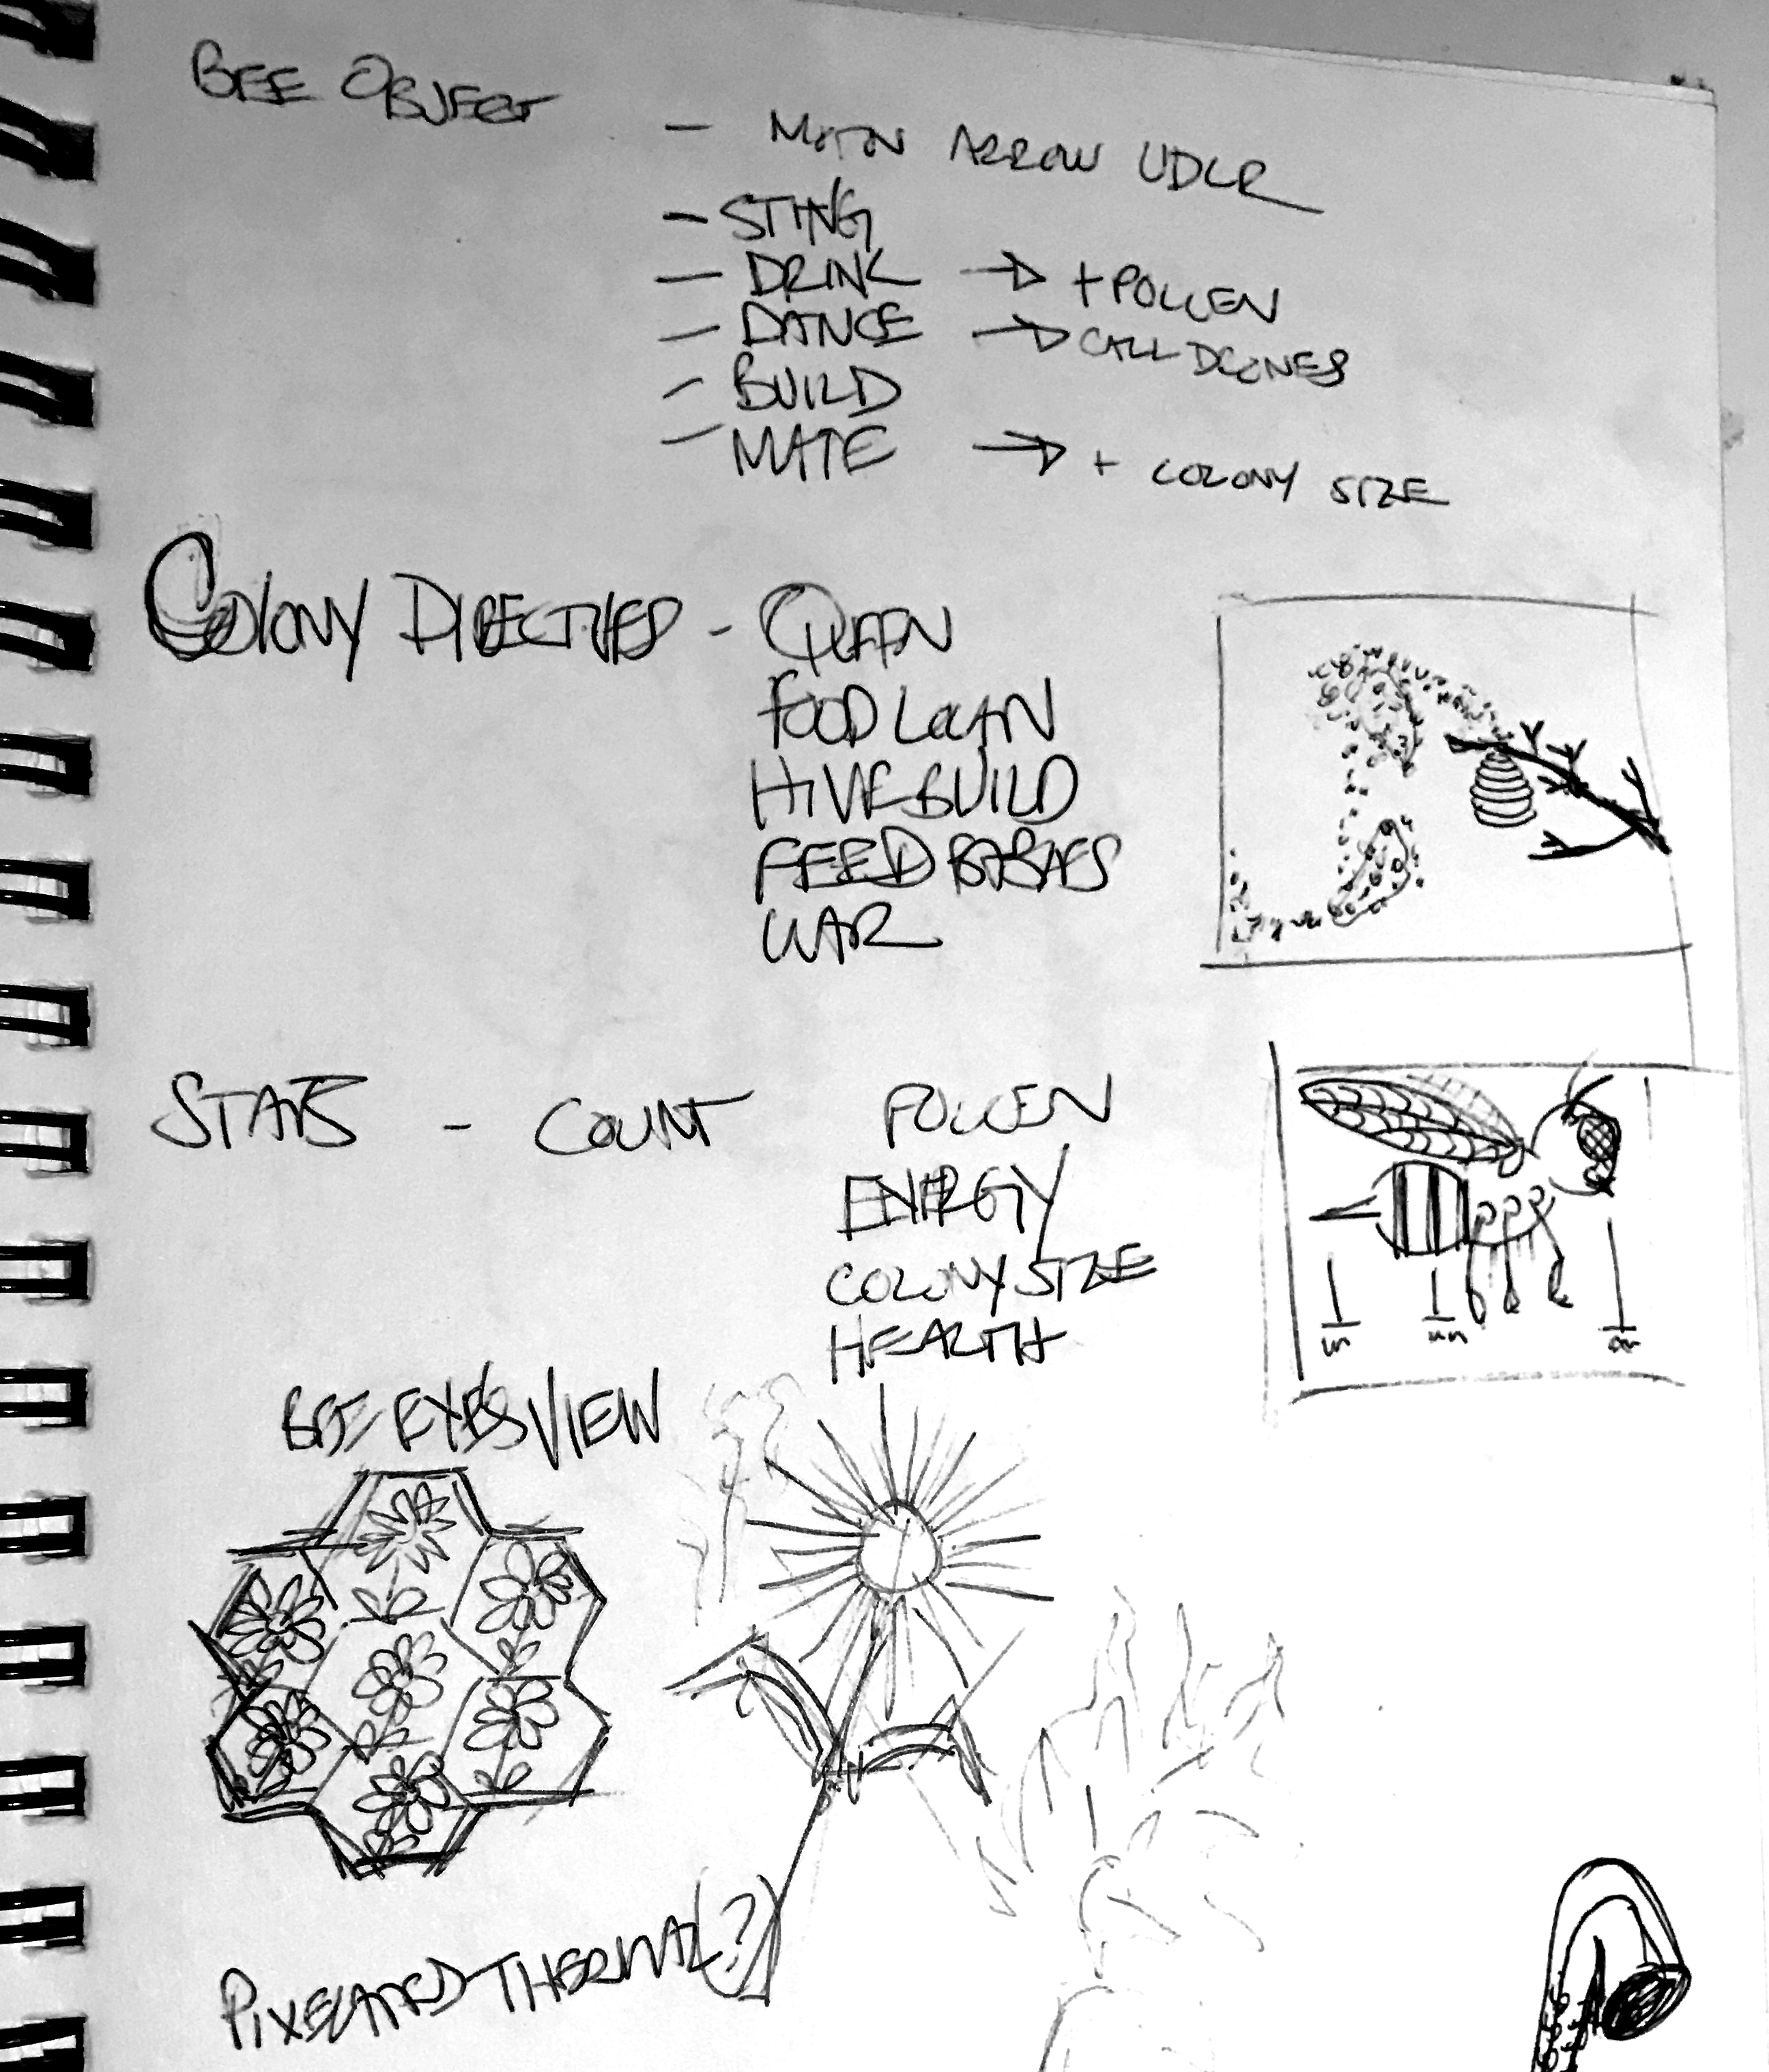 BEE OBJECT
- MOTION ARROW UDLR
- STING
- DRINK → + POLLEN
- DANCE → CALL DRONES
- BUILD
- MATE → + COLONY SIZE
COLONY DIRECTIVES - QUEEN
FOOD LOCATN
HIVE BUILD
FEED BABIES
WAR
STATS - COUNT POLLEN
ENERGY
COLONY SIZE
HEALTH
BEE EYES VIEW
PIXELATED THERMAL(?)